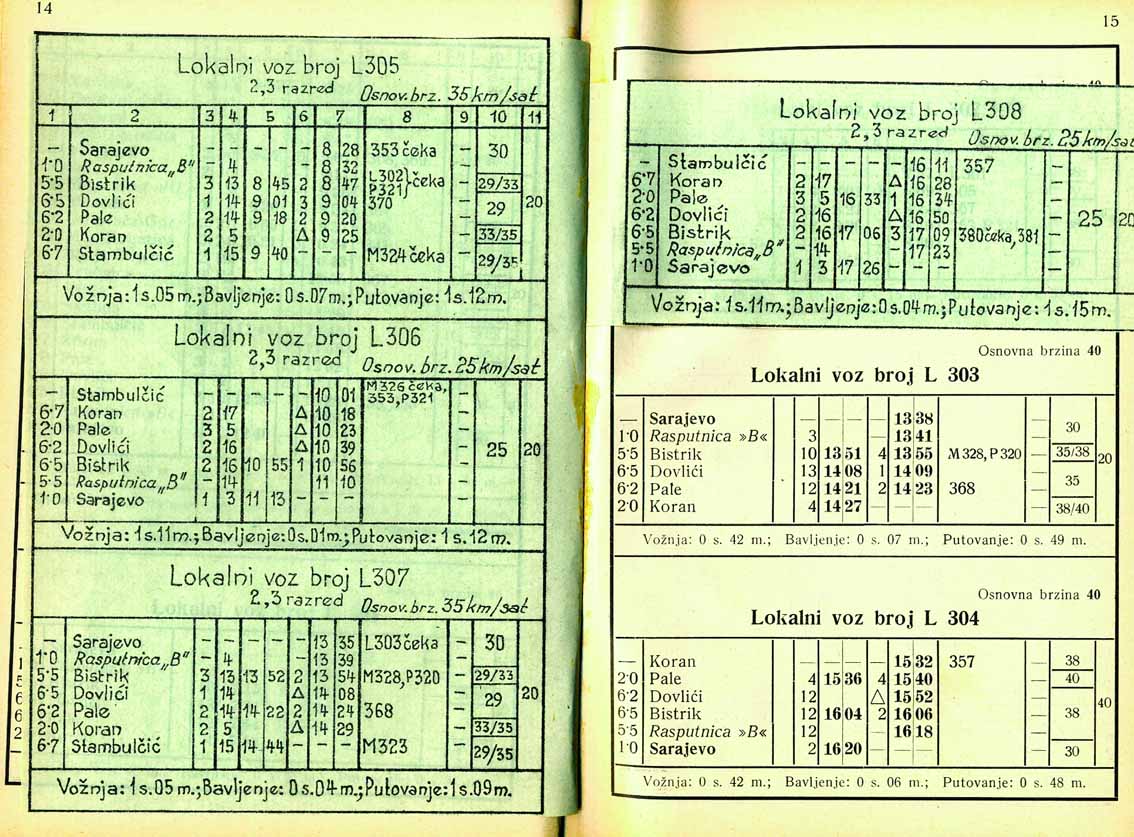 14
Lokalni voz broj L305
2,3 razred Osnov. brz. 35 km/sat
1 2 3 4 5 6 7 8 9 10 11
— Sarajevo — — — — — 8 28 353 čeka — 30
1·0 Rasputnica „B" — 4 — — — 8 32
5·5 Bistrik 3 13 8 45 2 8 47 L302 } P321 } čeka — 29/33
6·5 Dovlići 1 14 9 01 3 9 04 370 — 29 20
6·2 Pale 2 14 9 18 2 9 20 —
2·0 Koran 2 5 Δ 9 25 — 33/35
6·7 Stambulčić 1 15 9 40 — — — M324 čeka — 29/35
Vožnja: 1 s. 05 m.; Bavljenje: 0 s. 07 m.; Putovanje: 1 s. 12 m.
Lokalni voz broj L306
2,3 razred Osnov. brz. 25 km/sat
— Stambulčić — — — — — 10 01 M326 čeka, 353, P321 —
6·7 Koran 2 17 Δ 10 18 —
2·0 Pale 3 5 Δ 10 23 —
6·2 Dovlići 2 16 Δ 10 39 — 25 20
6·5 Bistrik 2 16 10 55 1 10 56 —
5·5 Rasputnica „B" — 14 11 10 —
1·0 Sarajevo 1 3 11 13 — — — —
Vožnja: 1 s. 11 m.; Bavljenje: 0 s. 01 m.; Putovanje: 1 s. 12 m.
Lokalni voz broj L307
2,3 razred Osnov. brz. 35 km/sat
— Sarajevo — — — — — 13 35 L303 čeka — 30
1·0 Rasputnica „B" — 4 — 13 39 —
5·5 Bistrik 3 13 13 52 2 13 54 M328, P320 — 29/33
6·5 Dovlići 1 14 Δ 14 08 — 29 20
6·2 Pale 2 14 14 22 2 14 24 368 —
2·0 Koran 2 5 Δ 14 29 — 33/35
6·7 Stambulčić 1 15 14 44 — — — M323 — 29/35
Vožnja: 1 s. 05 m.; Bavljenje: 0 s. 04 m.; Putovanje: 1 s. 09 m.
15
Lokalni voz broj L308
2,3 razred Osnov. brz. 25 km/sa
— Stambulčić — — — — — 16 11 357 —
6·7 Koran 2 17 Δ 16 28 —
2·0 Pale 3 5 16 33 1 16 34 —
6·2 Dovlići 2 16 Δ 16 50 — 25
6·5 Bistrik 2 16 17 06 3 17 09 380 čeka, 381 —
5·5 Rasputnica „B" — 14 — 17 23 —
1·0 Sarajevo 1 3 17 26 — — — —
Vožnja: 1 s. 11 m.; Bavljenje: 0 s. 04 m.; Putovanje: 1 s. 15 m.
Osnovna brzina 40
Lokalni voz broj L 303
— Sarajevo — — — — 13 38 — 30
1·0 Rasputnica »B« 3 — 13 41 —
5·5 Bistrik 10 13 51 4 13 55 M 328, P 320 — 35/38 20
6·5 Dovlići 13 14 08 1 14 09 — 35
6·2 Pale 12 14 21 2 14 23 368 —
2·0 Koran 4 14 27 — — — — 38/40
Vožnja: 0 s. 42 m.; Bavljenje: 0 s. 07 m.; Putovanje: 0 s. 49 m.
Osnovna brzina 40
Lokalni voz broj L 304
— Koran — — — — 15 32 357 — 38
2·0 Pale 4 15 36 4 15 40 — 40
6·2 Dovlići 12 Δ 15 52 — 40
6·5 Bistrik 12 16 04 2 16 06 — 38
5·5 Rasputnica »B« 12 — 16 18 —
1·0 Sarajevo 2 16 20 — — — — 30
Vožnja: 0 s. 42 m.; Bavljenje: 0 s. 06 m.; Putovanje: 0 s. 48 m.